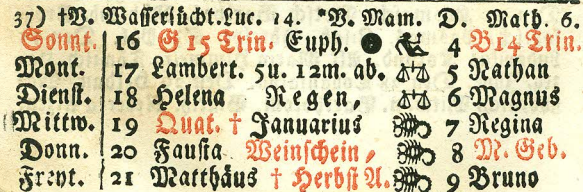 37) †V. Wassersücht. Luc. 14. *V. Mam. D. Math. 6.
Sonnt. 16 G 15 Trin. Euph. 4 B 14 Trin.
Mont. 17 Lambert. 5u. 12m. ab. ♎ 5 Nathan
Dienst. 18 Helena Regen, ♎ 6 Magnus
Mittw. 19 Quat. † Januarius 7 Regina
Donn. 20 Fausta Weinschein, 8 M. Geb.
Freyt. 21 Matthäus † Herbst A. 9 Bruno